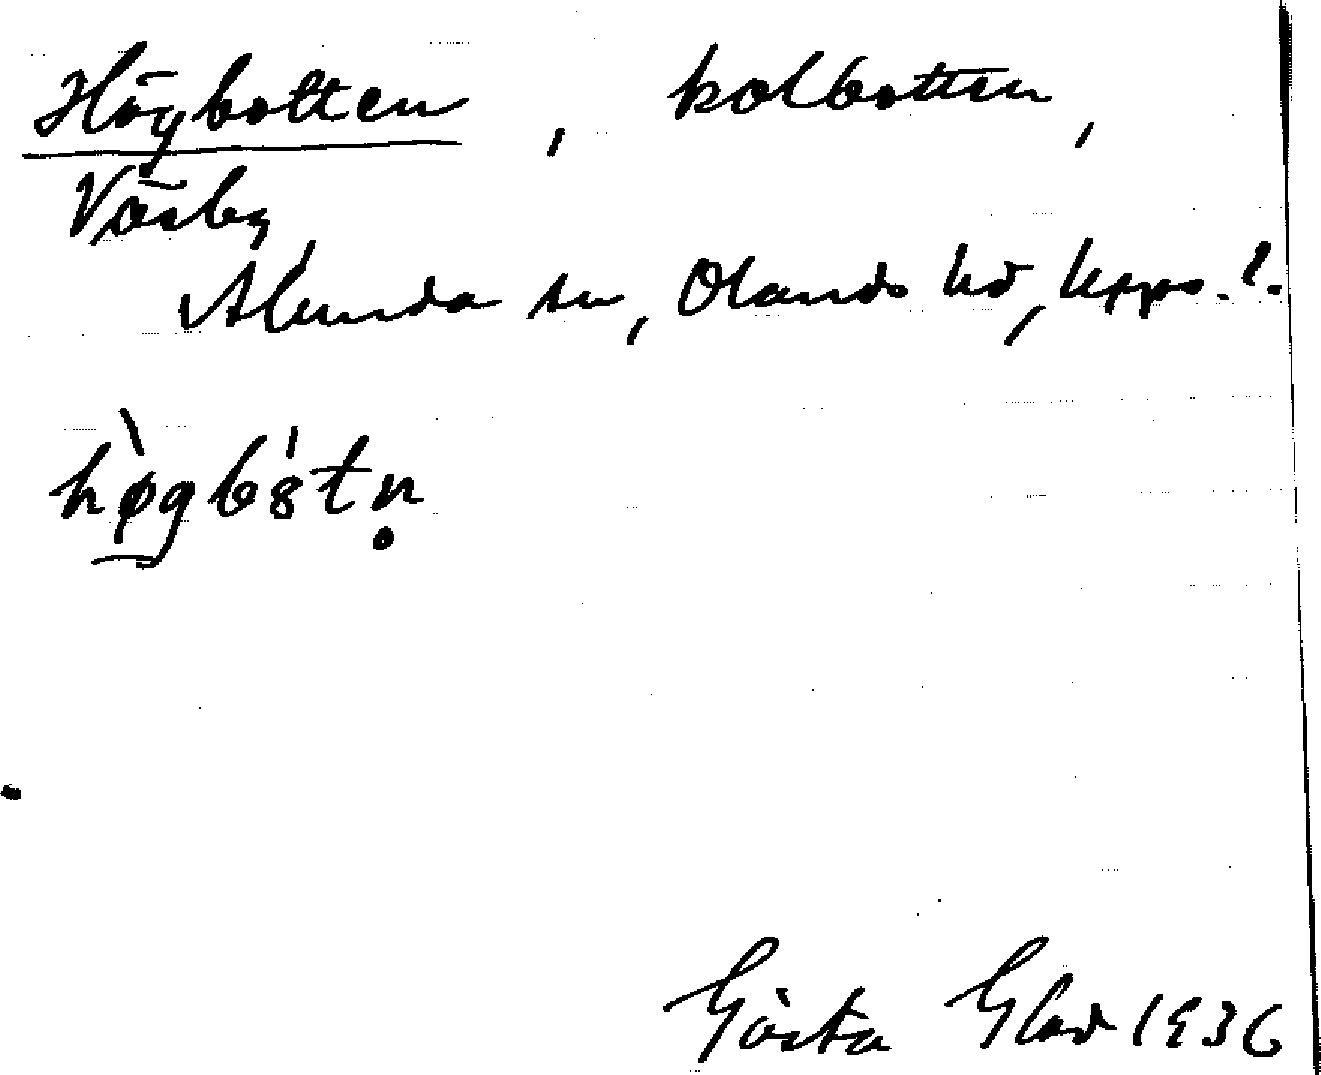 Högbotten, kolbotten,
Väsby,
Alunda sn, Olands hd, Upps. l.
hø̀gbȯ́tṇ
Gösta Glad 1936